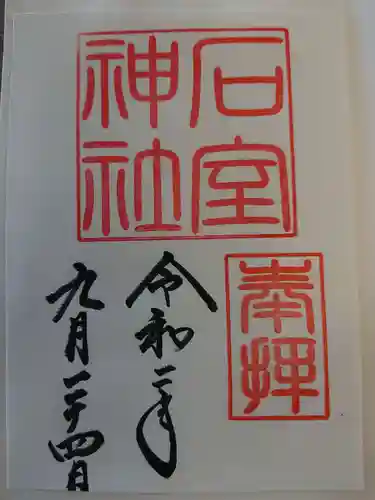 石室
神社
奉拝
令和二年
九月二十四日